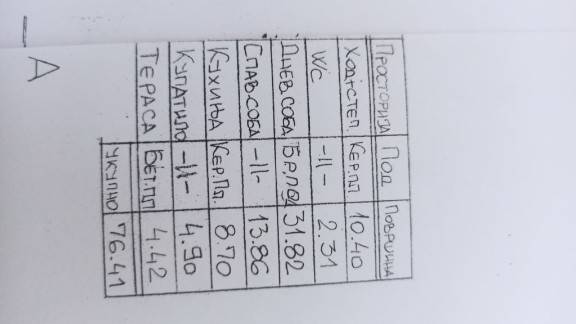 ПРОСТОРИЈА ПОД ПОВРШИНА
ХОД+СТЕП. КЕР.ПЛ 10.40
WC -||- 2.31
ДНЕВ.СОБА БР.ПОД 31.82
СПАВ.СОБА -||- 13.86
КУХИЊА КЕР.ПЛ. 8.70
КУПАТИЛО -||- 4.90
ТЕРАСА БЕТ.ПЛ 4.42
УКУПНО 76.41
А